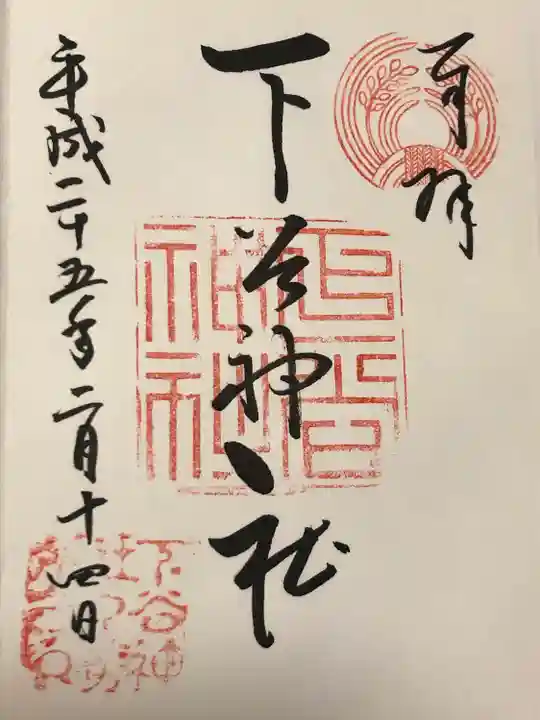 奉拝
下谷神社
下谷神社
平成二十五年二月十四日
下谷神